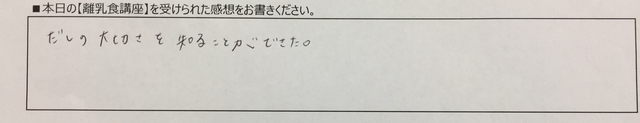 ■本日の【離乳食講座】を受けられた感想をお書きください。
だしの大切さを知ることができた。